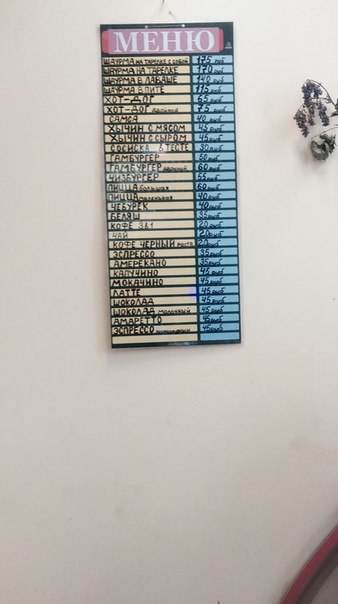 МЕНЮ
ШАУРМА НА ТАРЕЛКЕ С СОБОЙ 175 руб
ШАУРМА НА ТАРЕЛКЕ 170 руб
ШАУРМА В ЛАВАШЕ 140 руб
ШАУРМА В ПИТЕ 115 руб
ХОТ-ДОГ 65 руб
ХОТ-ДОГ ДВОЙНОЙ 75 руб
САМСА 40 руб
ХЫЧИН С МЯСОМ 45 руб
ХЫЧИН С СЫРОМ 45 руб
СОСИСКА В ТЕСТЕ 30 руб
ГАМБУРГЕР 50 руб
ГАМБУРГЕР ДВОЙНОЙ 60 руб
ЧИЗБУРГЕР 55 руб
ПИЦЦА БОЛЬШАЯ 60 руб
ПИЦЦА МАЛЕНЬКАЯ 40 руб
ЧЕБУРЕК 40 руб
БЕЛЯШ 35 руб
КОФЕ 3в1 20 руб
ЧАЙ 20 руб
КОФЕ ЧЕРНЫЙ РАСТВ. 20 руб
ЭСПРЕССО 35 руб
АМЕРЕКАНО 35 руб
КАПУЧИНО 45 руб
МОКАЧИНО 45 руб
ЛАТТЕ 45 руб
ШОКОЛАД 45 руб
ШОКОЛАД МОЛОЧНЫЙ 45 руб
АМАРЕТТО 45 руб
ЭСПРЕССО 45 руб